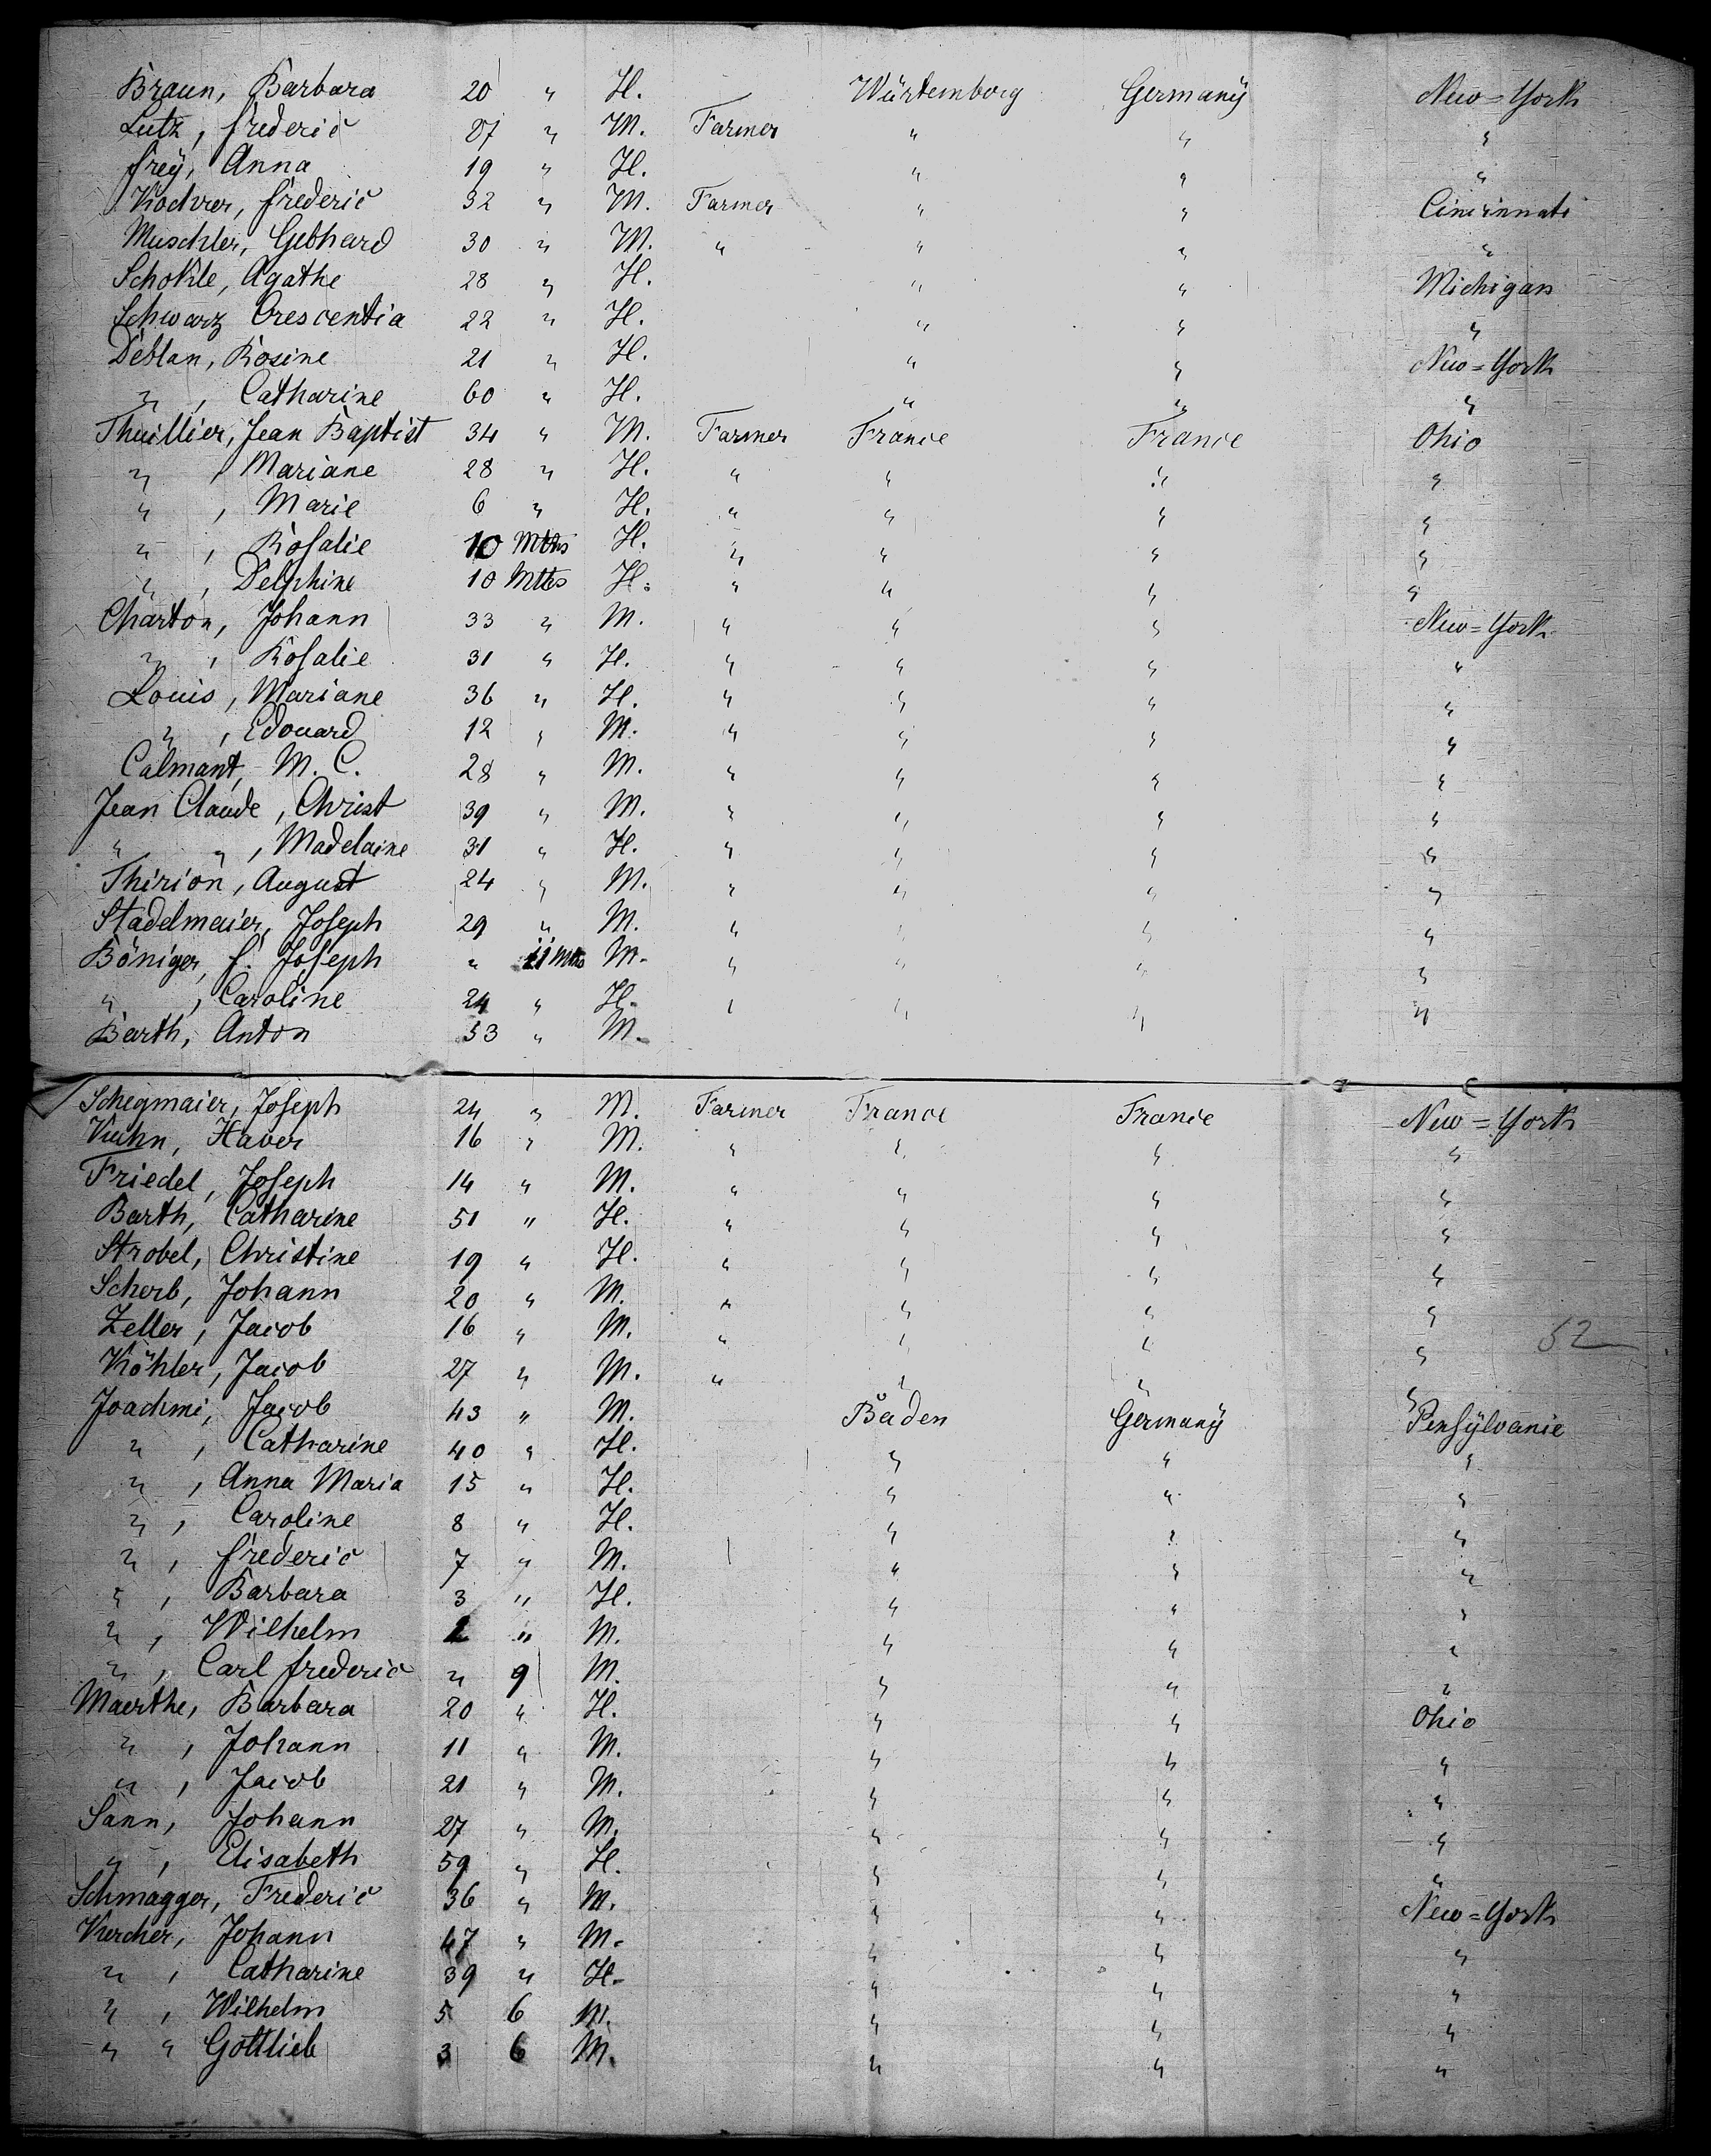 Braun, Barbara 20 " H. Würtemberg Germany New=York
Lutz, frederic 27 " M. Farmer " " "
frey, Anna 19 " H. " " "
Kochrer, frederic 32 " M. Farmer " " Cincinnati
Muschler, Gebhard 30 " M. " " " "
Schokle, Agathe 28 " H. " " Michigan
Schwarz Crescentia 22 " H. " " "
Deblan, Rosine 21 " H. " " New=York
" , Catharine 60 " H. " " "
Thuillier, Jean Baptist 34 " M. Farmer France France Ohio
" , Mariane 28 " H. " " " "
" , Marie 6 " H. " " " "
" , Rosalie 10 Mths H. " " " "
" , Delphine 10 Mths H. " " " "
Charton, Johann 33 " M. " " " New=York
" , Rosalie 31 " H. " " " "
Louis, Mariane 36 " H. " " " "
" , Edouard 12 " M. " " " "
Calmant, M. C. 28 " M. " " " "
Jean Claude, Christ 39 " M. " " " "
" " , Madelaine 31 " H. " " " "
Thirion, August 24 " M. " " " "
Stadelmaier, Joseph 29 " M. " " " "
Böniger, f. Joseph " 11 Mths M. " " " "
" , Caroline 24 " H. " " " "
Barth, Anton 53 " M.
Schegmaier, Joseph 24 " M. Farmer France France New=York
Kuhn, Xaver 16 " M. " " " "
Friedel, Joseph 14 " M. " " " "
Barth, Catharine 51 " H. " " " "
Strobel, Christine 19 " H. " " " "
Scherb, Johann 20 " M. " " " "
Zeller, Jacob 16 " M. " " " " 52
Köhler, Jacob 27 " M. " " " "
Joachmi, Jacob 43 " M. Baden Germany Pensylvanie
" , Catharine 40 " H. " " "
" , Anna Maria 15 " H. " " "
" , Caroline 8 " H. " " "
" , frederic 7 " M. " " "
" , Barbara 3 " H. " " "
" , Wilhelm " M. " " "
" , Carl frederic " 9 M. " " "
Maerthe, Barbara 20 " H. " " Ohio
" , Johann 11 " M. " " "
" , Jacob 21 " M. " " "
Sann, Johann 27 " M. " " "
" , Elisabeth 59 " H. " " "
Schmagger, Frederic 36 " M. " " New=York
Kercher, Johann 47 " M. " " "
" , Catharine 39 " H. " " "
" , Wilhelm 5 6 M. " " "
" " Gottlieb 3 6 M. " " "